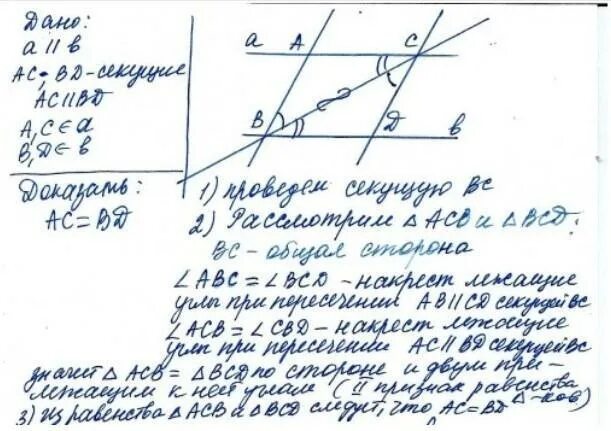 Дано:
a || b
AC; BD - секущие
AC || BD
A, C ∈ a
B, D ∈ b
Доказать:
AC = BD
a A C
B D b
1) проведем секущую BC
2) Рассмотрим △ ACB и △ BCD.
BC - общая сторона
∠ABC = ∠BCD - накрест лежащие
углы при пересечении AB || CD секущей BC
∠ACB = ∠CBD - накрест лежащие
углы при пересечении AC || BD секущей BC
значит △ ACB = △ BCD по стороне и двум при-
лежащим к ней углам (II признак равенства
△-ков)
3) Из равенства △ ACB и △ BCD следует, что AC = BD